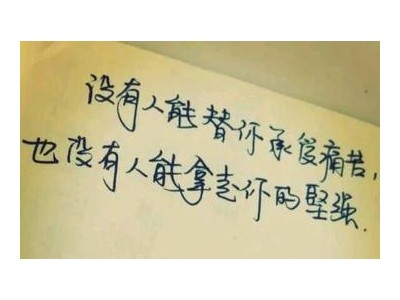 没有人能替你承受痛苦,
也没有人能拿走你的坚强.